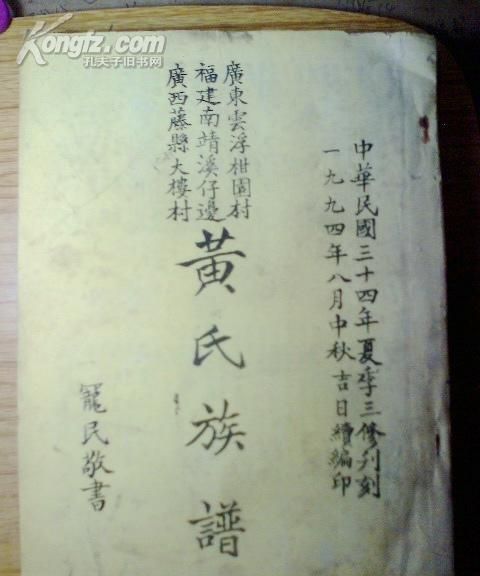 Kongfz.com
孔夫子旧书网
中華民國三十四年夏季三修刋刻
一九九四年八月中秋吉日續編印
廣東雲浮柑園村
福建南靖溪仔邊
廣西藤縣大樓村
黃氏族譜
寵民敬書